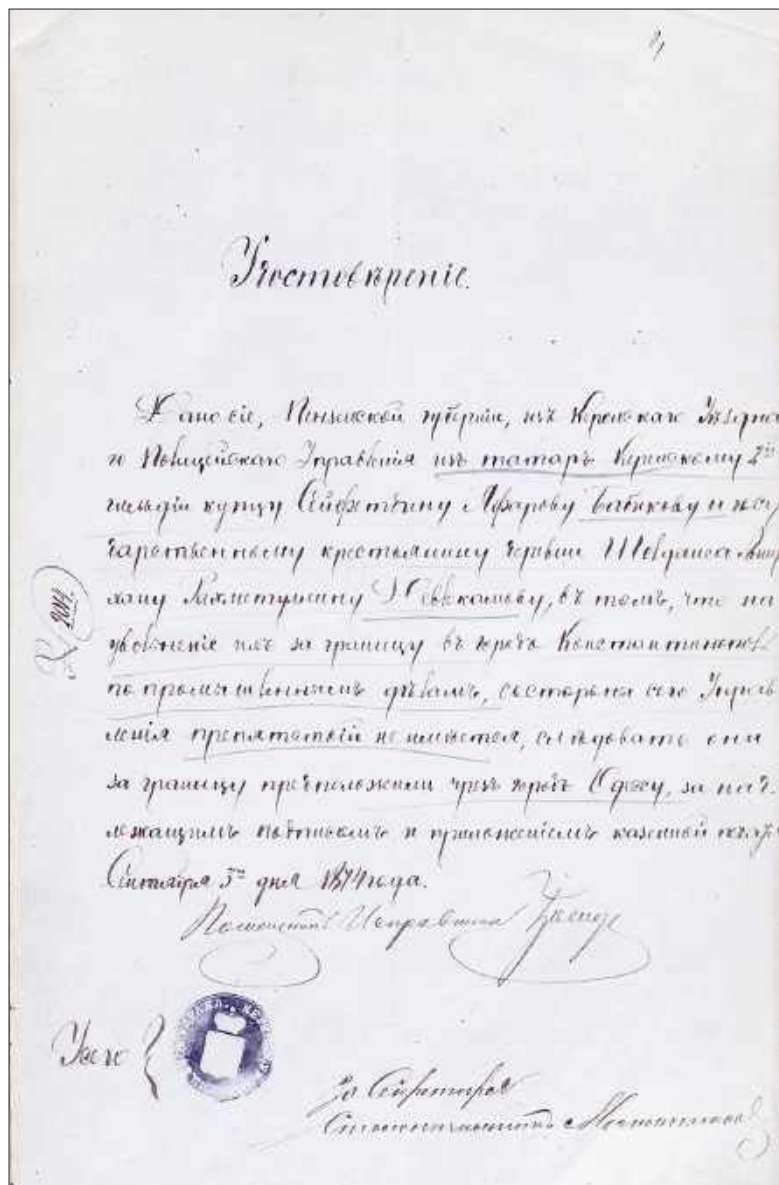 Удостовѣреніе.
Дано сіе, Пензенской губерніи, изъ Керенскаго Уѣздна
го Полицейскаго Управленія изъ татаръ Керенскому 2й
гильдіи купцу Сейфетдину Абзарову Бибикову и госу
дарственному крестьянину деревни
Рахметуллину въ томъ, что на
увольненіе ихъ за границу въ городъ Константинополь
по промышленнымъ дѣламъ, со стороны сего Управ
ленія препятствій не имѣется, слѣдовать они
за границу предположили чрезъ городъ Одессу, за над
лежащимъ подписомъ и приложеніемъ казенной печати
Сентября 5го дня 1874 года.
Помощникъ Исправника
№ 2012
За Секретаря
Столоначальникъ